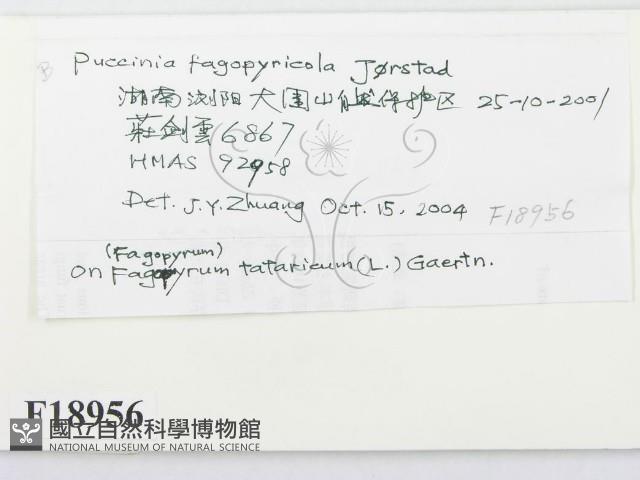 Puccinia fagopyricola Jørstad
湖南浏阳大围山自然保护区 25-10-2001
莊剑雲 6867
HMAS 92958
Det. J.Y. Zhuang Oct. 15, 2004 F18956
(Fagopyrum)
on Fagopyrum tataricum (L.) Gaertn.
F18956
國立自然科學博物館
NATIONAL MUSEUM OF NATURAL SCIENCE